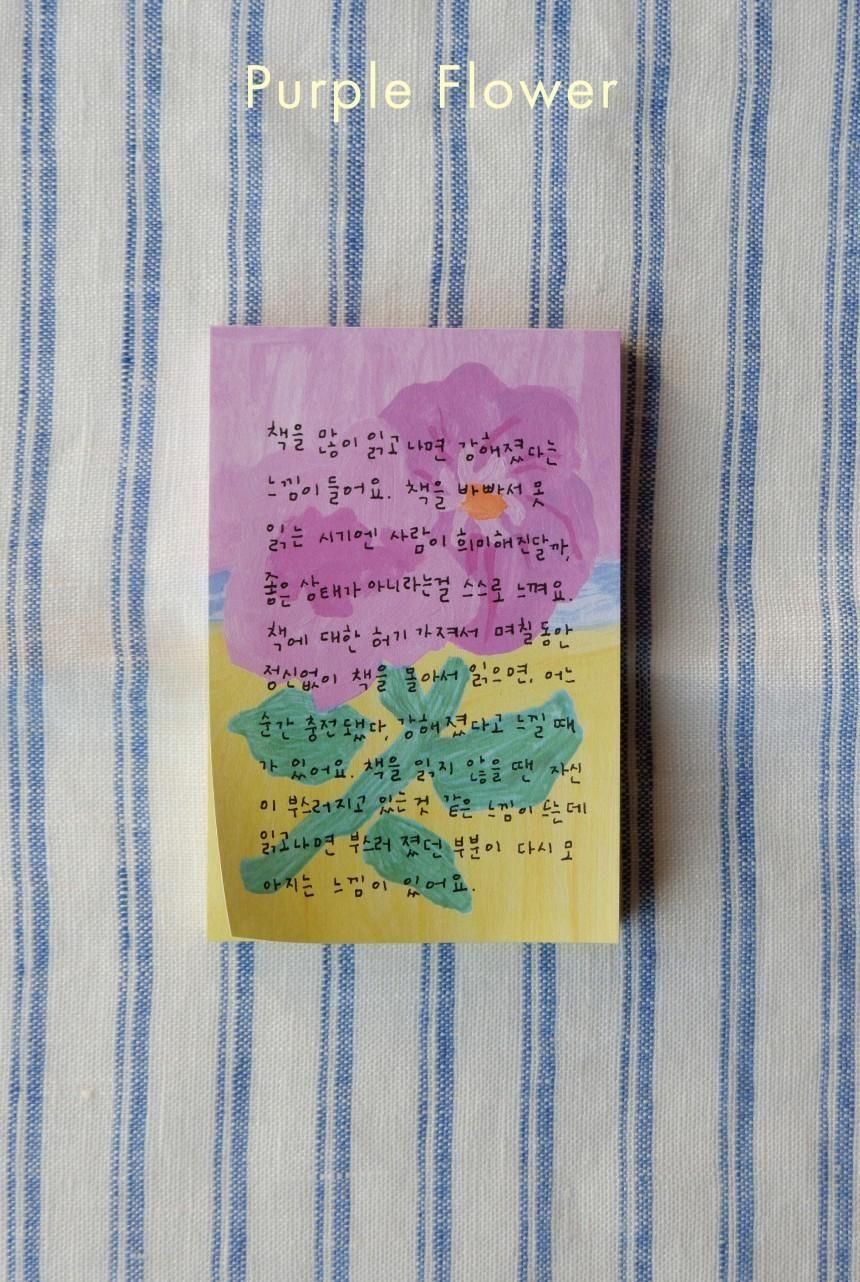 Purple Flower
책을 많이 읽고 나면 강해졌다는
느낌이 들어요. 책을 바빠서 못
읽는 시기엔 사람이 희미해진달까,
좋은 상태가 아니라는걸 스스로 느껴요.
책에 대한 허기 가져서 며칠동안
정신없이 책을 몰아서 읽으면, 어느
순간 충전됐다, 강해졌다고 느낄 때
가 있어요. 책을 읽지 않을 땐 자신
이 부스러지고 있는 것 같은 느낌이 드는데
읽고나면 부스러졌던 부분이 다시 모
아지는 느낌이 있어요.